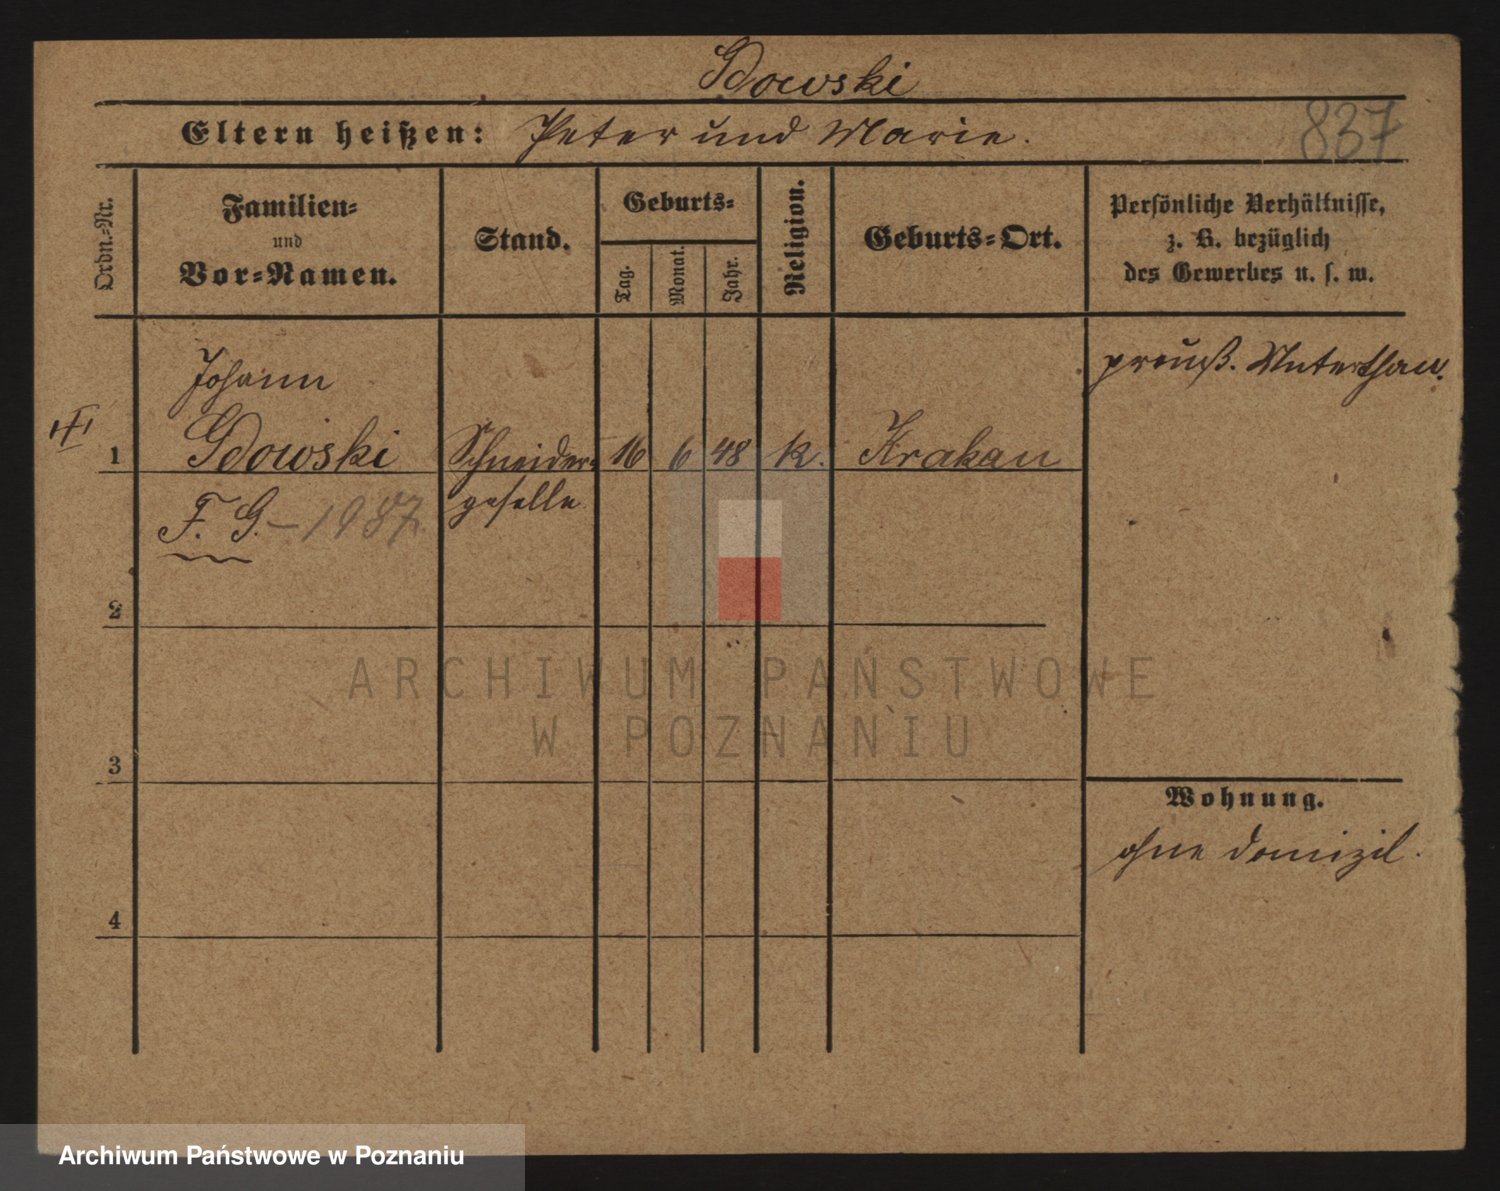 Gdowski
Eltern heißen: Peter und Marie.
837
Ordn.-Nr.
Familien-
und
Vor-Namen.
Stand.
Geburts-
Tag.
Monat.
Jahr.
Religion.
Geburts-Ort.
Persönliche Verhältnisse,
z. B. bezüglich
des Gewerbes u. s. w.
Johann
preuß. Unterthan.
1 Gdowski Schneider- 16 6 48 K. Krakau
geselle
F. G. - 1987.
2
ARCHIWUM PAŃSTWOWE
W POZNANIU
3
Wohnung.
ohne Domizil.
4
Archiwum Państwowe w Poznaniu